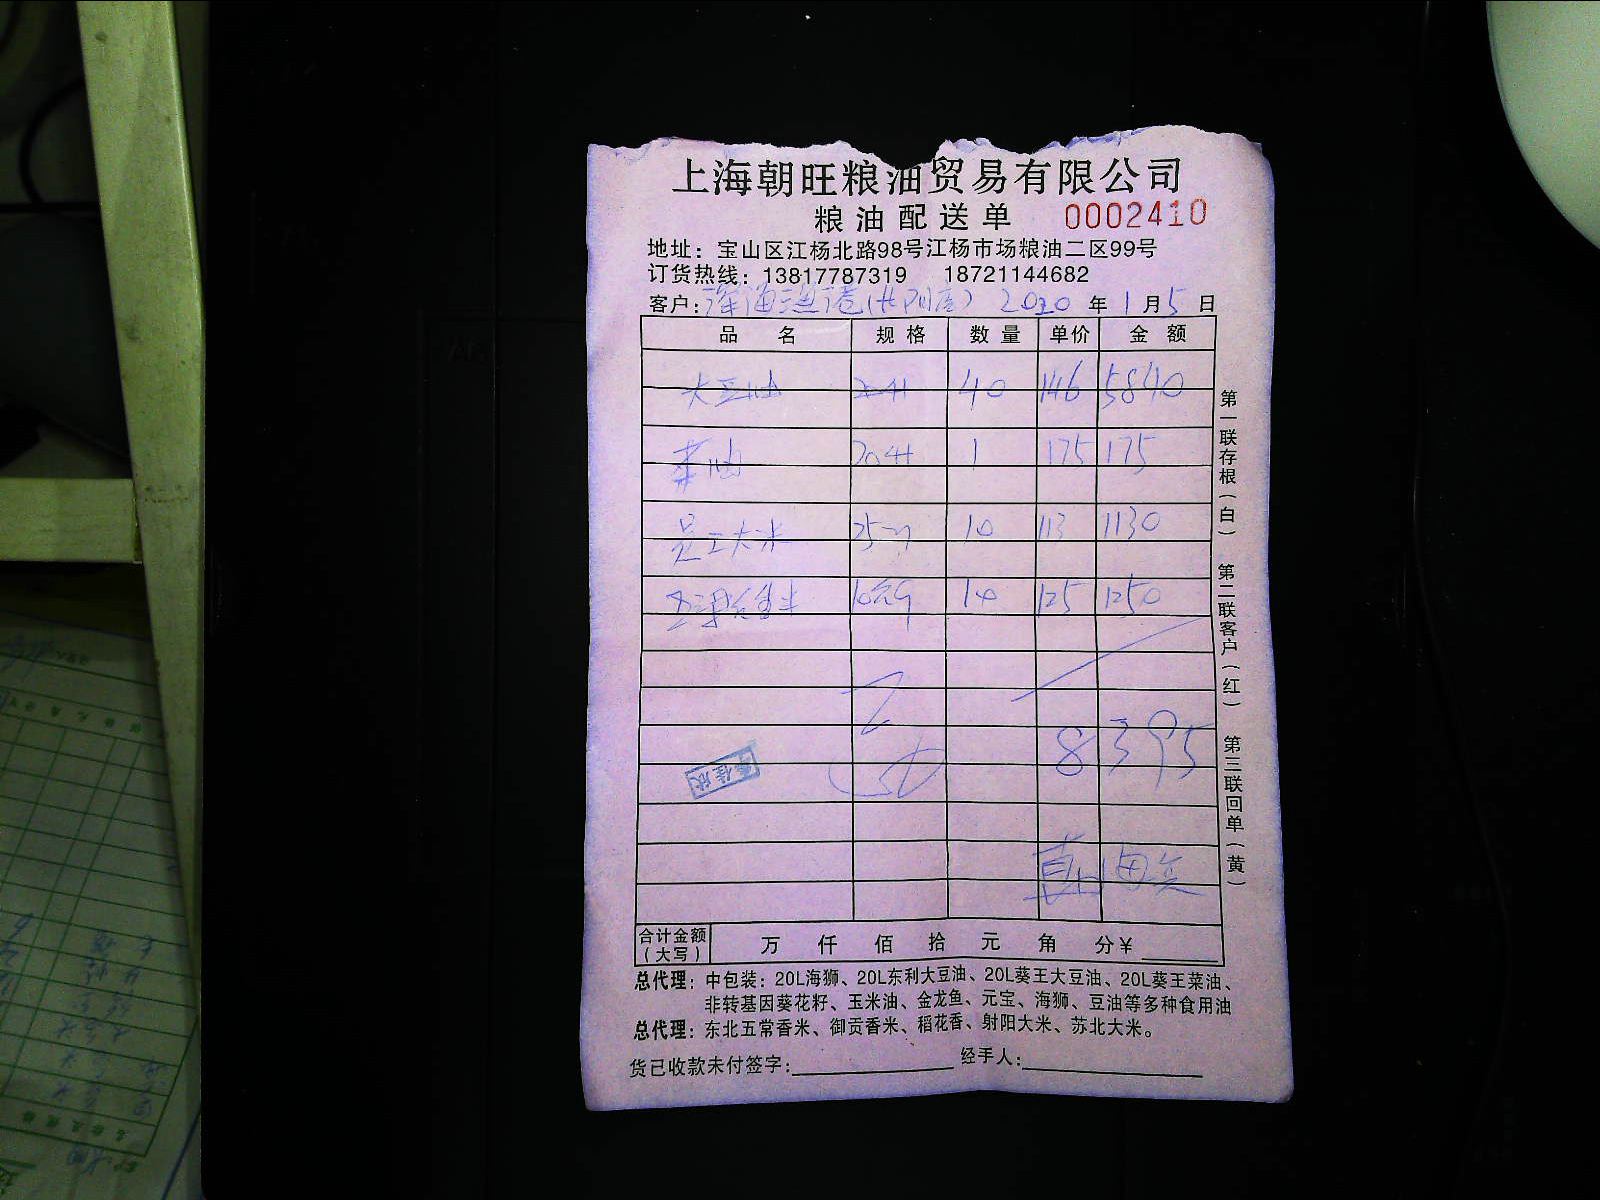 上海朝旺粮油贸易有限公司
粮油配送单 0002410
地址：宝山区江杨北路98号江杨市场粮油二区99号
订货热线：13817787319 18721144682
客户： 2020 年 1 月 5 日
品 名 规格 数量 单价 金额
大豆油 40 146 5840
菜油 1 175 175
员工大米 10 113 1130
10 125 1250
8395
合计金额（大写） 万 仟 佰 拾 元 角 分￥
总代理：中包装：20L海狮、20L东利大豆油、20L葵王大豆油、20L葵王菜油、
非转基因葵花籽、玉米油、金龙鱼、元宝、海狮、豆油等多种食用油
总代理：东北五常香米、御贡香米、稻花香、射阳大米、苏北大米。
货已收款未付签字： 经手人：
第一联存根（白） 第二联客户（红） 第三联回单（黄）